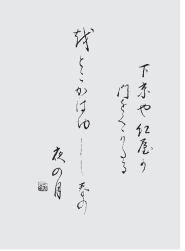 下京や紅屋か
門をくゝりたる
越とこかはゆし春の
夜の月